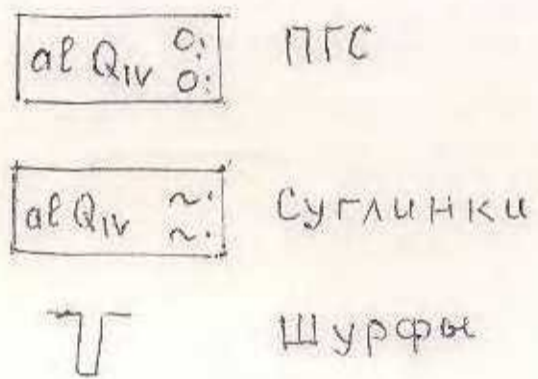 al QIV ПГС
al QIV Суглинки
Шурфы